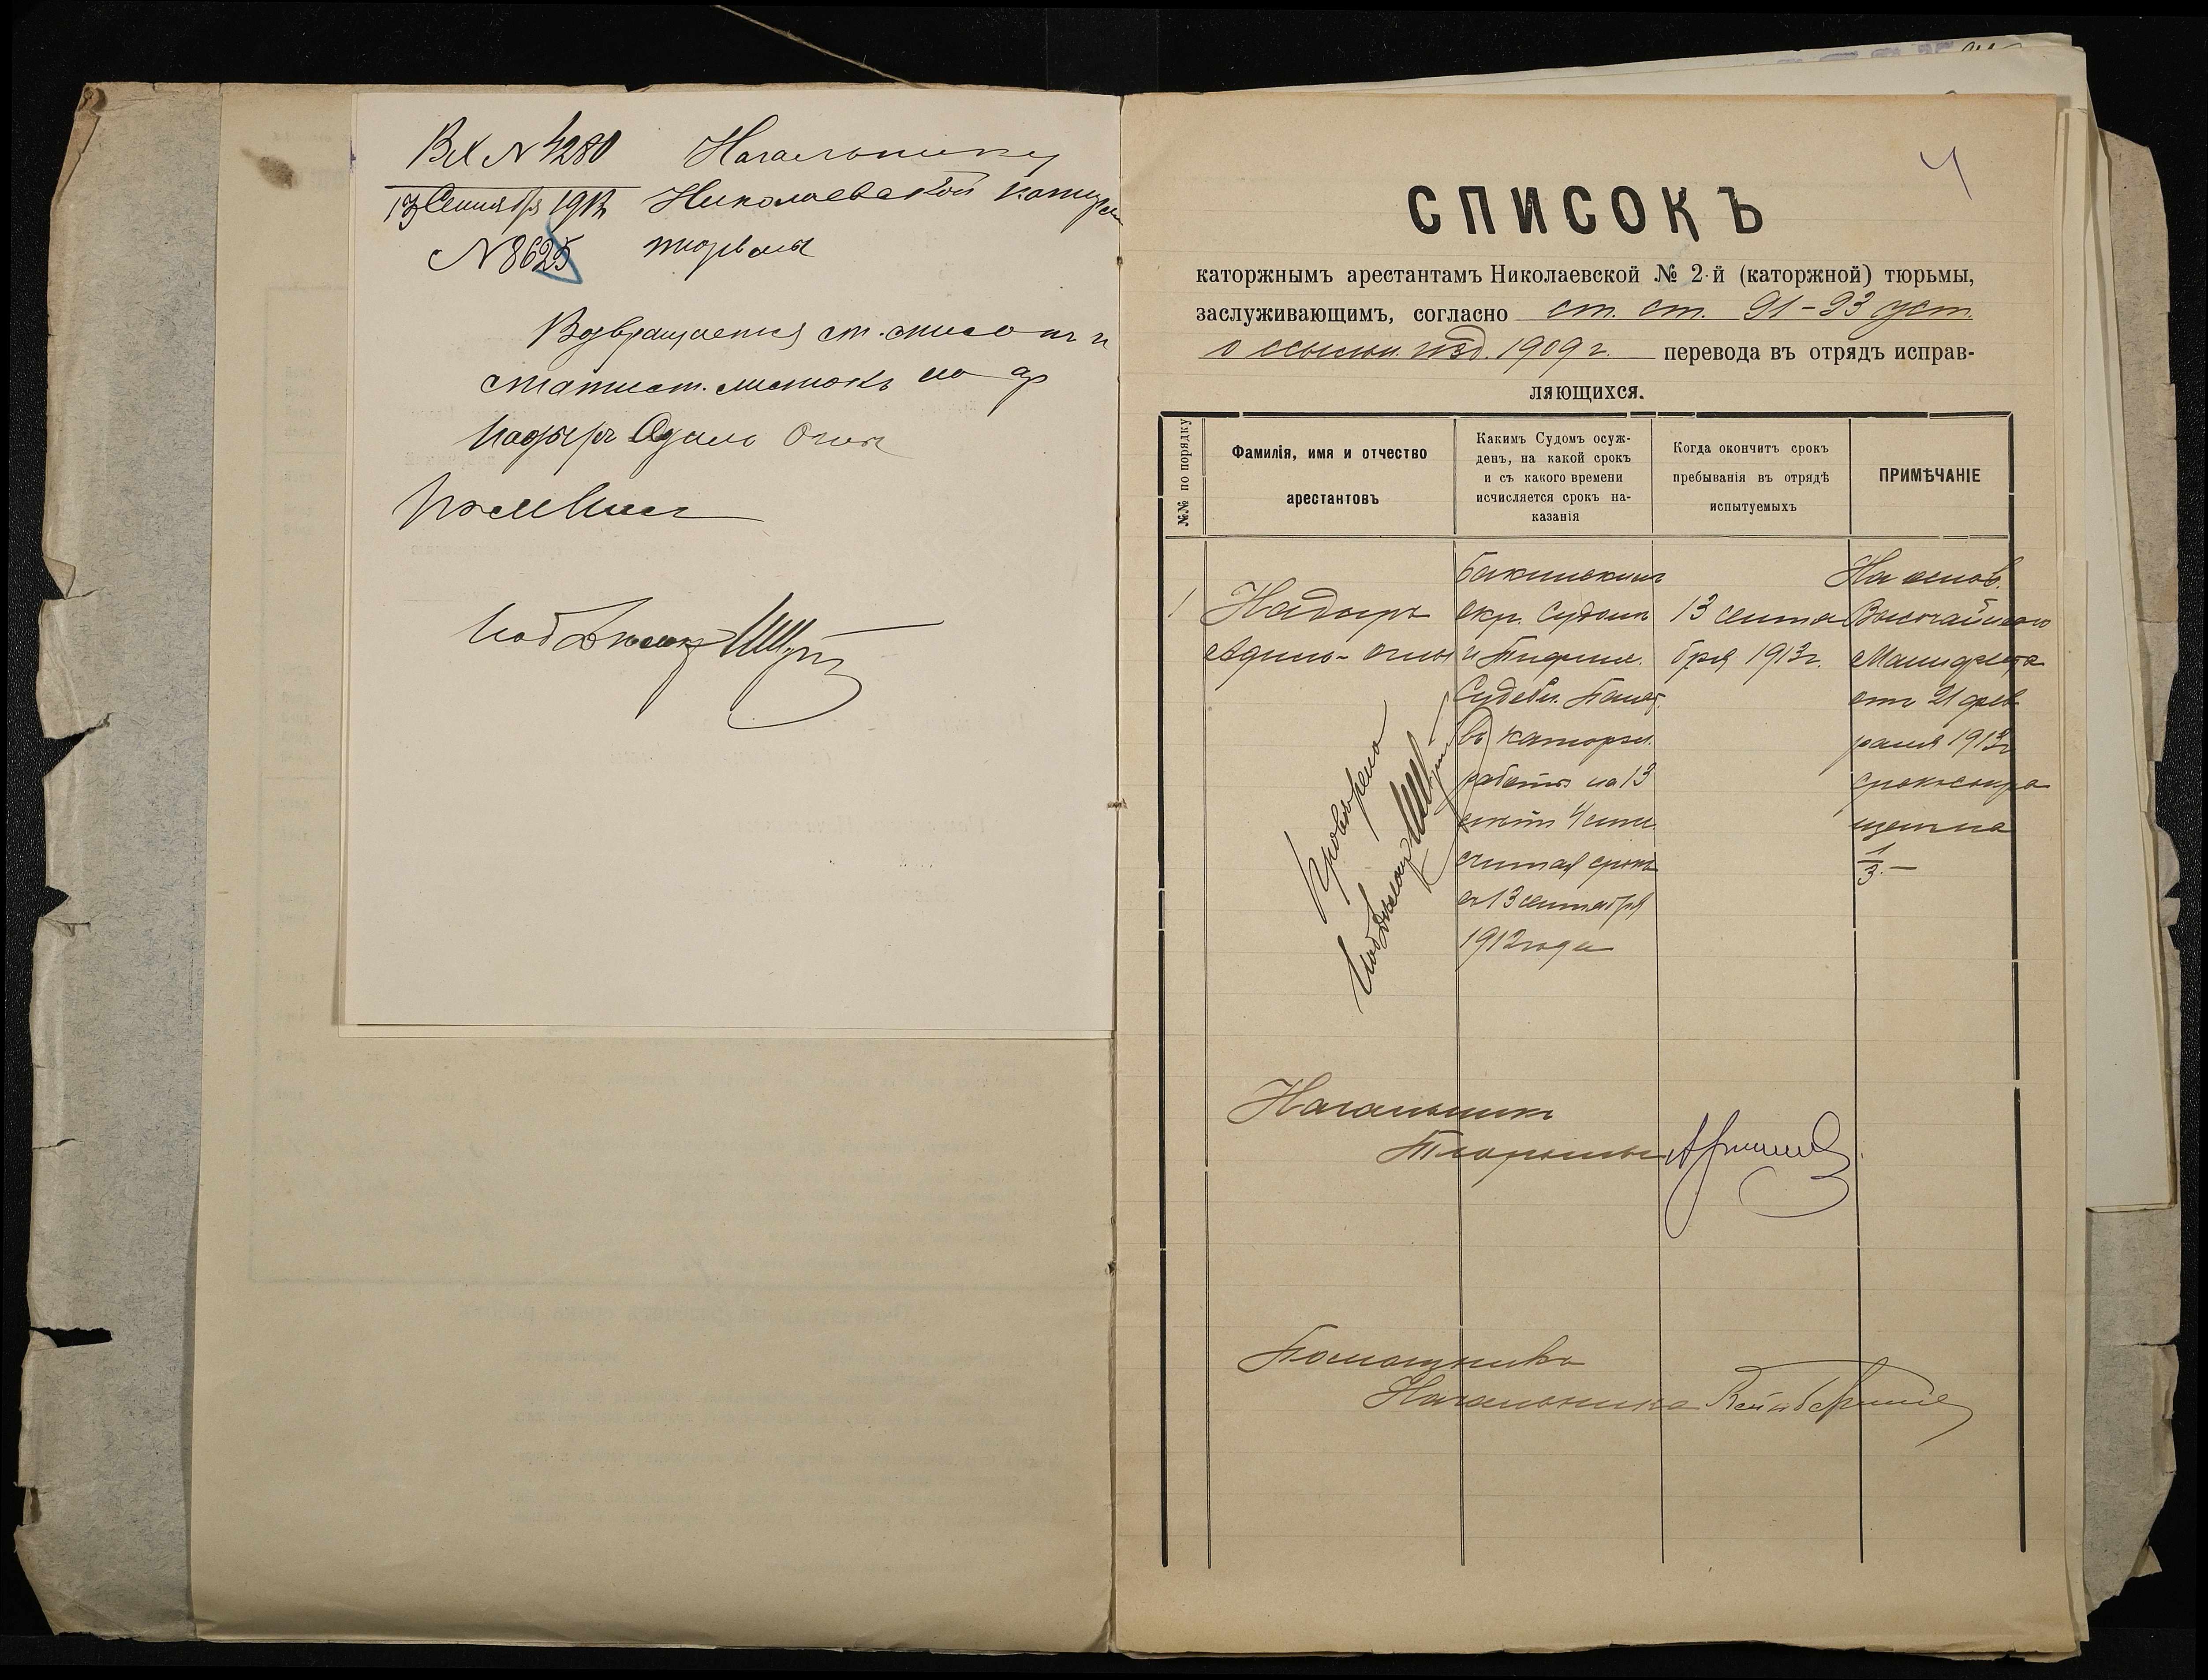 Вх № 4280
13 Сентября 1913
№ 8625
Начальнику
Николаевской каторжн
тюрьмы
Возвращается ст. список и
статист. листокъ на ар
Надыръ Адило Оглы
4
СПИСОКЪ
каторжнымъ арестантамъ Николаевской № 2-й (каторжной) тюрьмы,
заслуживающимъ, согласно ст. ст. 91-93 уст.
о ссыльн. изд. 1909 г. перевода въ отрядъ исправ-
ляющихся.
№№ по порядку
Фамилія, имя и отчество
арестантовъ
Какимъ Судомъ осуж-
денъ, на какой срокъ
и съ какого времени
исчисляется срокъ на-
казанія
Когда окончитъ срокъ
пребыванія въ отрядѣ
испытуемыхъ
ПРИМѢЧАНІЕ
1
Надыръ
Адило-оглы
Бакинскимъ
окр. Судомъ
и Тифлис.
Судебн. Палат.
въ каторжн.
работы на 13
лѣтъ 4 мѣс.
считая срокъ
съ 13 сентября
1912 года
13 сентя
бря 1913 г.
На основ.
Высочайшаго
Манифеста
отъ 21 фев
раля 1913 г
срокъ сокра
щенъ на
1/3.-
Провѣрено
Начальникъ
Тюрьмы
Помощникъ
Начальника